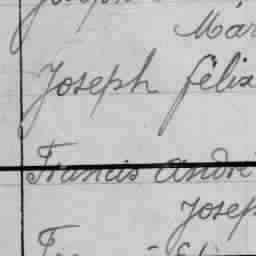 Mar
Joseph félix
Francis André
Josep